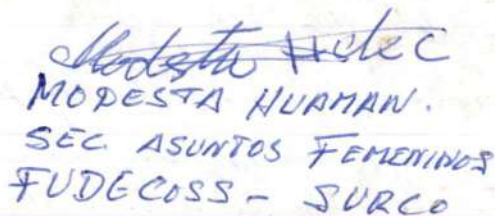 Modesta
MODESTA HUAMAN.
SEC. ASUNTOS FEMENINOS
FUDECOSS - SURCO